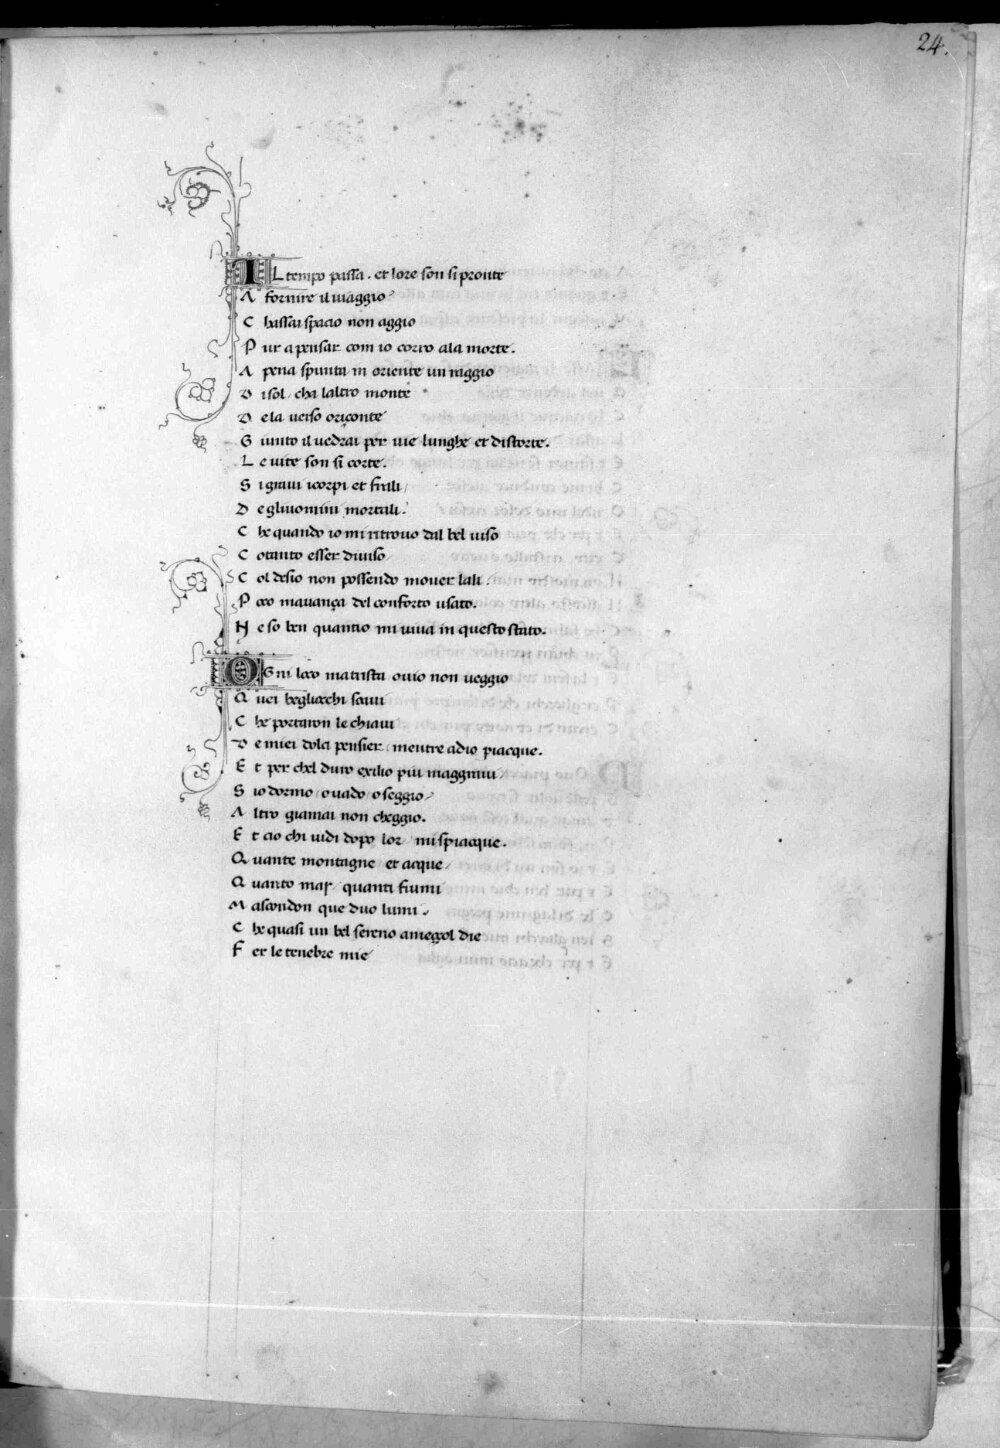 24.
IL tempo passa. et lore son si pronte
A fornire il uiaggio
C hassai spacio non aggio
P ur a pensar com io corro ala morte.
A pena spunta in oriente un raggio
D i sol. cha laltro monte
D e la uerso oriçonte
G iunto il uedrai per uie lunghe et distorte.
L e uite son si corte.
S i graui icorpi et frali
D e gliuomini mortali.
C he quando io mi ritrouo dal bel uiso
C otanto esser diuiso
C ol desio non possendo mouer lali.
P oco mauança del conforto usato.
N e so ben quantio mi uiua in questo stato.
OGni loco matrista ouio non ueggio
Q uei begliocchi soaui
C he portaron le chiaui
D e miei dolci pensier mentre adio piacque.
E t per chel duro exilio piu maggraui
S io dormo o uado o seggio
A ltro giamai non cheggio.
E t cio chi uidi dopo lor mi spiacque.
Q uante montagne et acque
Q uanto mar quanti fiumi
M ascondon que duo lumi.
C he quasi un bel sereno a mezol die
F er le tenebre mie